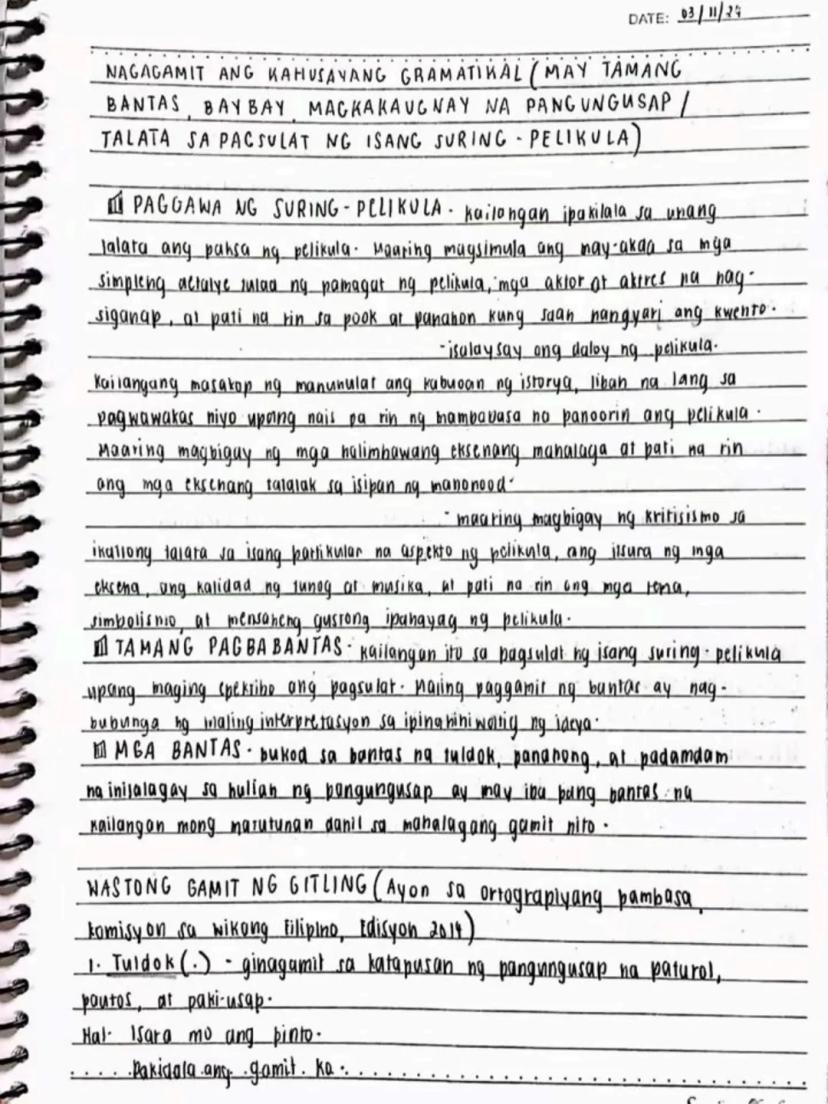 DATE: 03/11/24
NAGAGAMIT ANG KAHUSAYANG GRAMATIKAL (MAY TAMANG
BANTAS, BAYBAY, MAGKAKAUGNAY NA PANGUNGUSAP/
TALATA SA PAGSULAT NG ISANG SURING-PELIKULA)
PAGGAWA NG SURING-PELIKULA. kailangan ipakilala sa unang
talata ang paksa ng pelikula. Maaring magsimula ang may-akda sa mga
simpleng detalye tulad ng pamagat ng pelikula, mga aktor at aktres na nag-
siganap, at pati na rin sa pook at panahon kung saan nangyari ang kwento.
-isalaysay ang daloy ng pelikula.
kailangang masakop ng manunulat ang kabuoan ng istorya, liban na lang sa
pagwawakas niyo upang nais pa rin ng mambabasa na panoorin ang pelikula.
Maaring magbigay ng mga halimbawang eksenang mahalaga at pati na rin
ang mga eksenang tatatak sa isipan ng manonood.
- maaring magbigay ng kritisismo sa
ikatlong talata sa isang partikular na aspekto ng pelikula, ang itsura ng mga
eksena, ang kalidad ng tunog at musika, at pati na rin ang mga tema,
simbolismo, at mensaheng gustong ipahayag ng pelikula.
TAMANG PAGBABANTAS. kailangan ito sa pagsulat ng isang suring-pelikula
upang maging epektibo ang pagsulat. Maling paggamit ng bantas ay nag-
bubunga ng maling interpretasyon sa ipinahihiwatig ng ideya.
MGA BANTAS. bukod sa bantas na tuldok, pananong, at padamdam
na inilalagay sa hulian ng pangungusap ay may iba pang bantas na
kailangan mong matutunan dahil sa mahalagang gamit nito.
WASTONG GAMIT NG GITLING (Ayon sa ortograpiyang pambasa,
komisyon sa wikong Filipino, Edisyon 2014)
1. Tuldok (.) - ginagamit sa katapusan ng pangungusap na paturol,
pautos, at paki-usap.
Hal. Isara mo ang pinto.
Pakidala ang gamit ko.